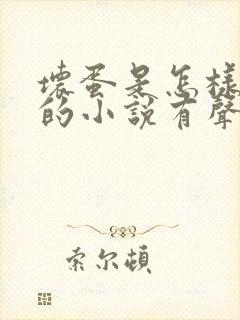 壞蛋是怎樣
的小說有聲
索尔頓